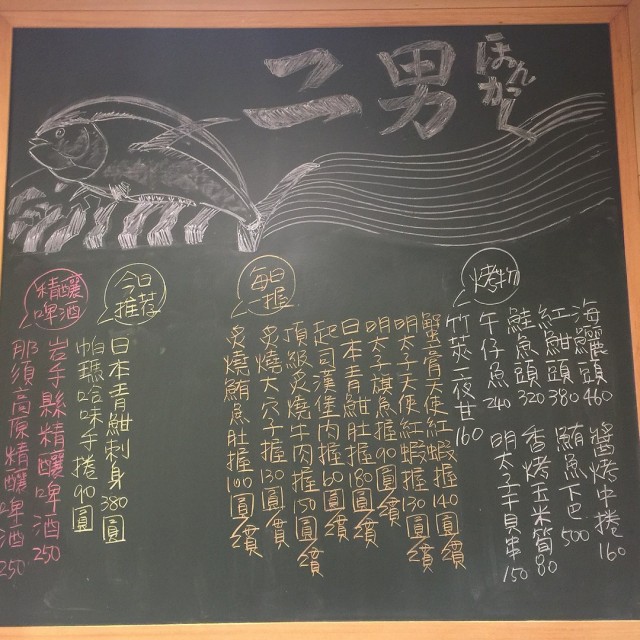 二男
ほんかく
烤物
海鱺頭 460
紅魽頭 380
鮭魚頭 320
午仔魚 240
竹莢一夜甘 160
醬烤中捲 160
鮪魚下巴 500
香烤玉米筒 80
明太子干貝串 150
每日握
蟹膏天使紅蝦握 140圓/貫
明太子天使紅蝦握 130圓/貫
明太子旗魚握 90圓/貫
日本青魽肚握 180圓/貫
起司漢堡肉握 60圓/貫
頂級炙燒牛肉握 150圓/貫
炙燒大穴子握 130圓/貫
炙燒鮪魚肚握 100圓/貫
今日推荐
日本青魽刺身 380圓
帕瑪哈味手捲 90圓
精釀啤酒
岩手縣精釀啤酒 250
那須高原精釀啤酒 250